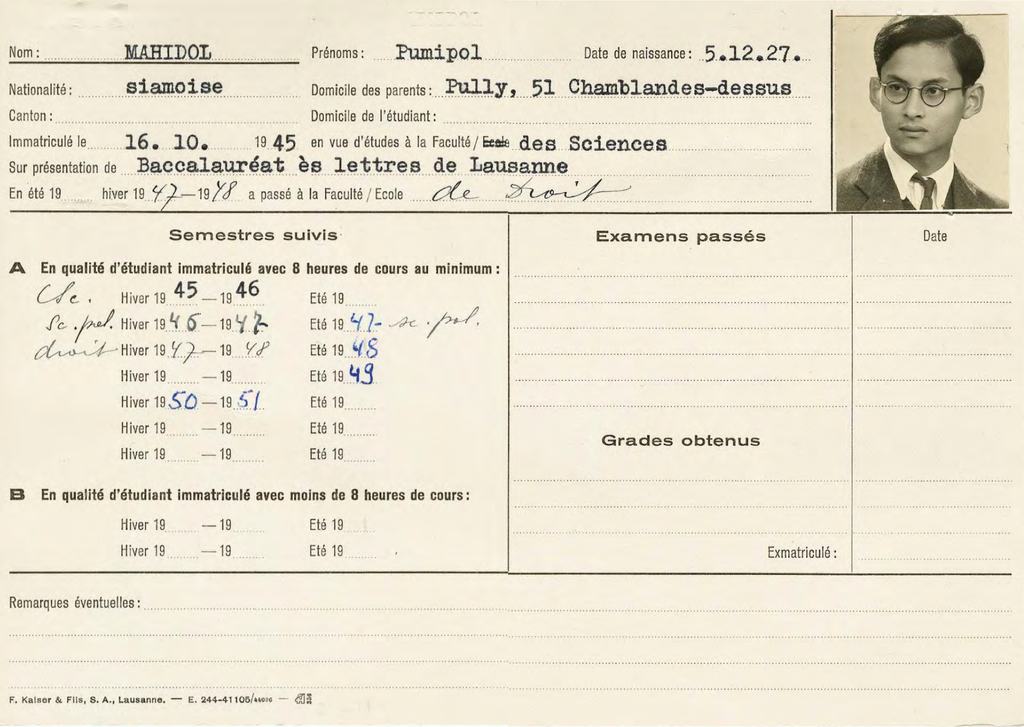 Nom: MAHIDOL Prénoms: Pumipol Date de naissance: 5.12.27.
Nationalité: siamoise Domicile des parents: Pully, 51 Chamblandes-dessus
Canton: Domicile de l'étudiant:
Immatriculé le 16. 10. 1945 en vue d'études à la Faculté / Ecole des Sciences
Sur présentation de Baccalauréat ès lettres de Lausanne
En été 19 hiver 1947-1948 a passé à la Faculté / Ecole de Droit
Semestres suivis
A En qualité d'étudiant immatriculé avec 8 heures de cours au minimum:
Sc. Hiver 19 45 — 19 46 Eté 19
Sc. pol. Hiver 19 46 — 19 47 Eté 19 47 - sc. pol.
droit Hiver 19 47 — 19 48 Eté 19 48
Hiver 19 — 19 Eté 19 49
Hiver 19 50 — 19 51 Eté 19
Hiver 19 — 19 Eté 19
Hiver 19 — 19 Eté 19
B En qualité d'étudiant immatriculé avec moins de 8 heures de cours:
Hiver 19 — 19 Eté 19
Hiver 19 — 19 Eté 19
Examens passés Date
Grades obtenus
Exmatriculé:
Remarques éventuelles:
F. Kaiser & Fils, S. A., Lausanne. — E. 244-41105/